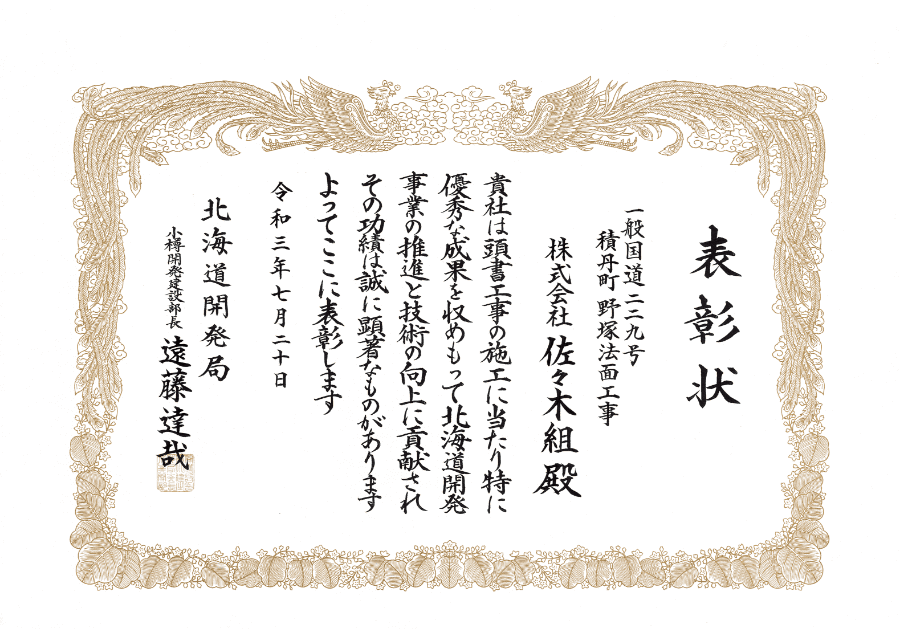 表彰状
一般国道二二九号
積丹町 野塚法面工事
株式会社 佐々木組 殿
貴社は頭書工事の施工に当たり特に
優秀な成果を収めもって北海道開発
事業の推進と技術の向上に貢献され
その功績は誠に顕著なものがあります
よってここに表彰します
令和三年七月二十日
北海道開発局
小樽開発建設部長 遠藤達哉